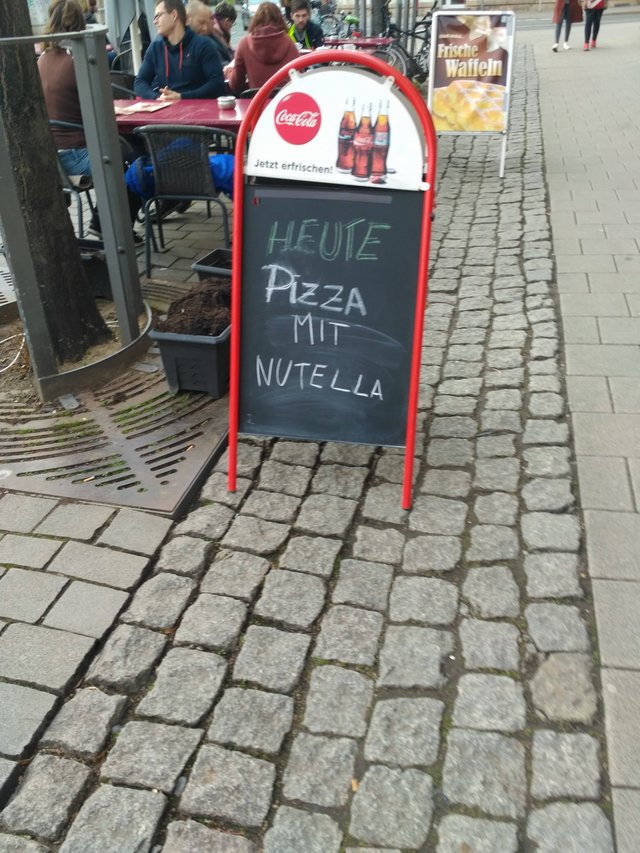 Frische
Waffeln
Coca-Cola
Jetzt erfrischen!
HEUTE
PIZZA
MIT
NUTELLA